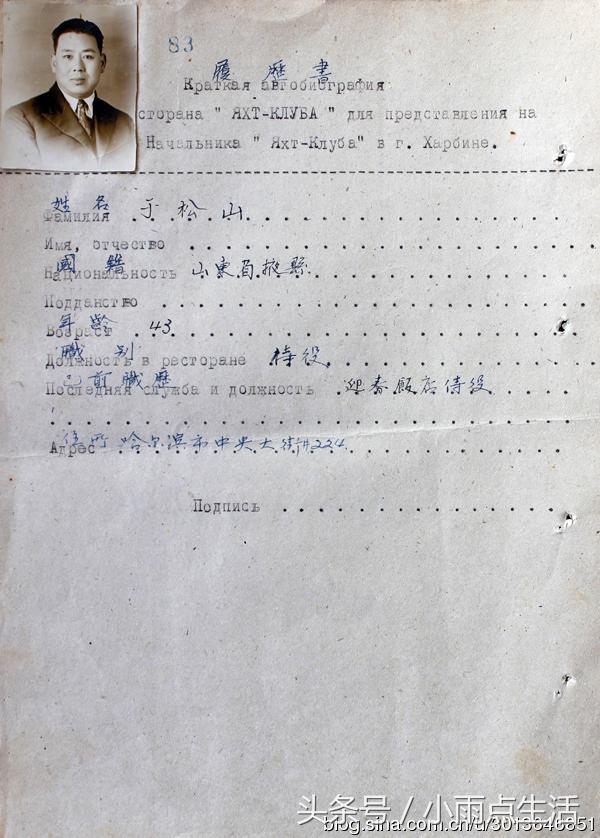 83
履歷書
Краткая автобиография
сторана " ЯХТ-КЛУБА " для представления на
Начальника " Яхт-Клуба" в г. Харбине.
姓名
Фамилия 于松山
Имя, отчество
國籍
Национальность 山東省掖縣
Подданство
年齡
Возраст 43
職別
Должность в ресторане 侍役
已前職歷
Последняя служба и должность 迎春飯店侍役
住所
Адрес 哈尔滨市中央大街#224
Подпись
头条号 / 小雨点生活
blog.sina.com.cn/u/3013646351